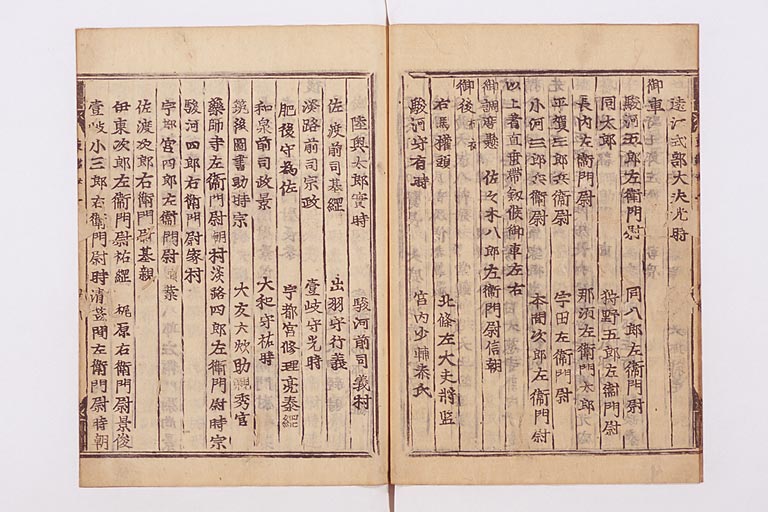 遠江式部大夫光時
御車
駿河五郎左衛門尉　同八郎左衛門尉
同太郎　狩野五郎左衛門尉
長内左衛門尉　那須左衛門太郎
平賀三郎兵衛尉　宇田左衛門尉
小河三郎兵衛尉　本間次郎左衛門尉
以上着直垂帯劔候御車左右
御調度懸　佐々木八郎左衛門尉信朝
御後 布衣
右馬權頭　北條左大夫将監
駿河守有時　宮内少輔泰氏
陸奥太郎實時　駿河前司義村
佐渡前司基綱　出羽守行義
淡路前司宗政　壹岐守光時
肥後守為佐　宇都宮修理亮泰綱
和泉前司政景　大和守祐時
筑後圖書助時宗　大友式部助親秀官
藥師寺左衛門尉朝村　淡路四郎左衛門尉時宗
駿河四郎右衛門尉家村
宇都宮四郎左衛門尉　業
佐渡次郎右衛門尉基親
伊東次郎左衛門尉祐經　梶原右衛門尉景俊
壹岐小三郎右衛門尉時清　笠間左衛門尉時朝